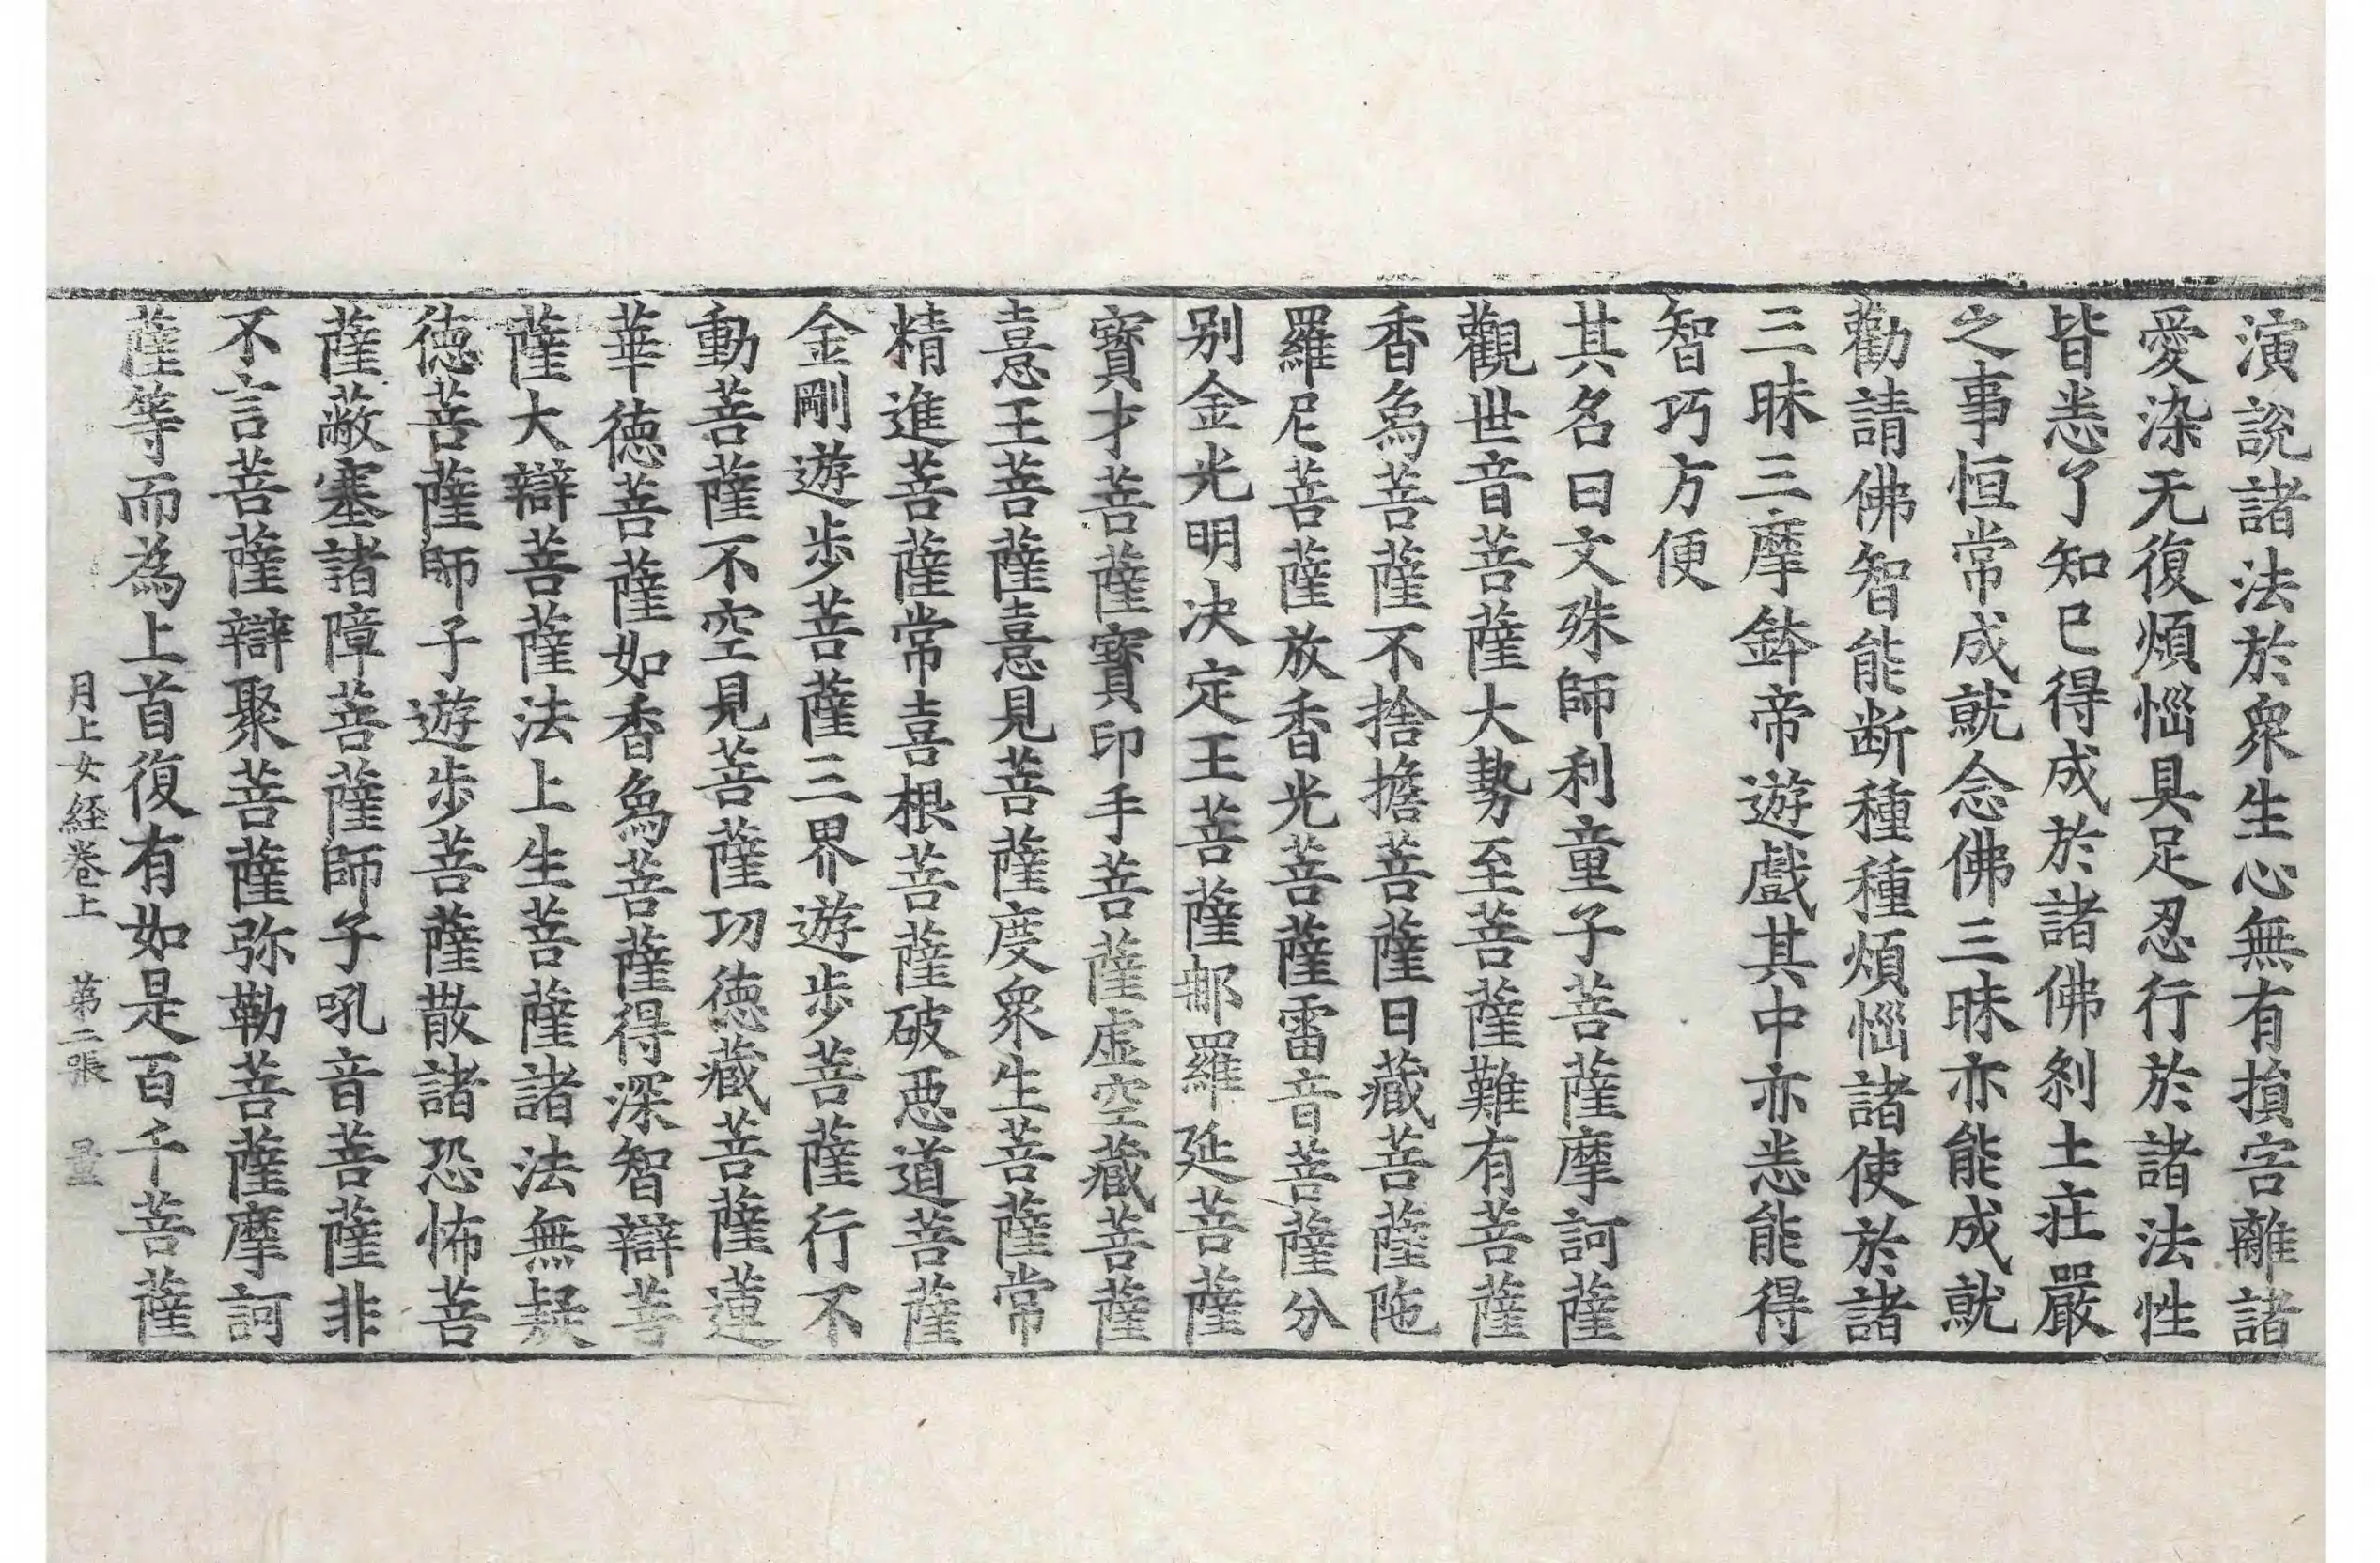 演說諸法於衆生心無有損害離諸
愛染无復煩惱具足忍行於諸法性
皆悉了知已得成於諸佛刹土莊嚴
之事恒常成就念佛三昧亦能成就
勸請佛智能断種種煩惱諸使於諸
三昧三摩鉢帝遊戲其中亦悉能得
智巧方便
其名曰文殊師利童子菩薩摩訶薩
觀世音菩薩大勢至菩薩難有菩薩
香象菩薩不捨擔菩薩日藏菩薩陁
羅尼菩薩放香光菩薩雷音菩薩分
别金光明决定王菩薩那羅延菩薩
寶才菩薩寶印手菩薩虛空藏菩薩
憙王菩薩憙見菩薩度衆生菩薩常
精進菩薩常喜根菩薩破惡道菩薩
金剛遊步菩薩三界遊步菩薩行不
動菩薩不空見菩薩功德藏菩薩蓮
華德菩薩如香象菩薩得深智辯菩
薩大辯菩薩法上生菩薩諸法無疑
德菩薩師子遊步菩薩散諸恐怖菩
薩蔽塞諸障菩薩師子吼音菩薩非
不言菩薩辯聚菩薩弥勒菩薩摩訶
薩等而為上首復有如是百千菩薩
月上女経卷上 第二張 量